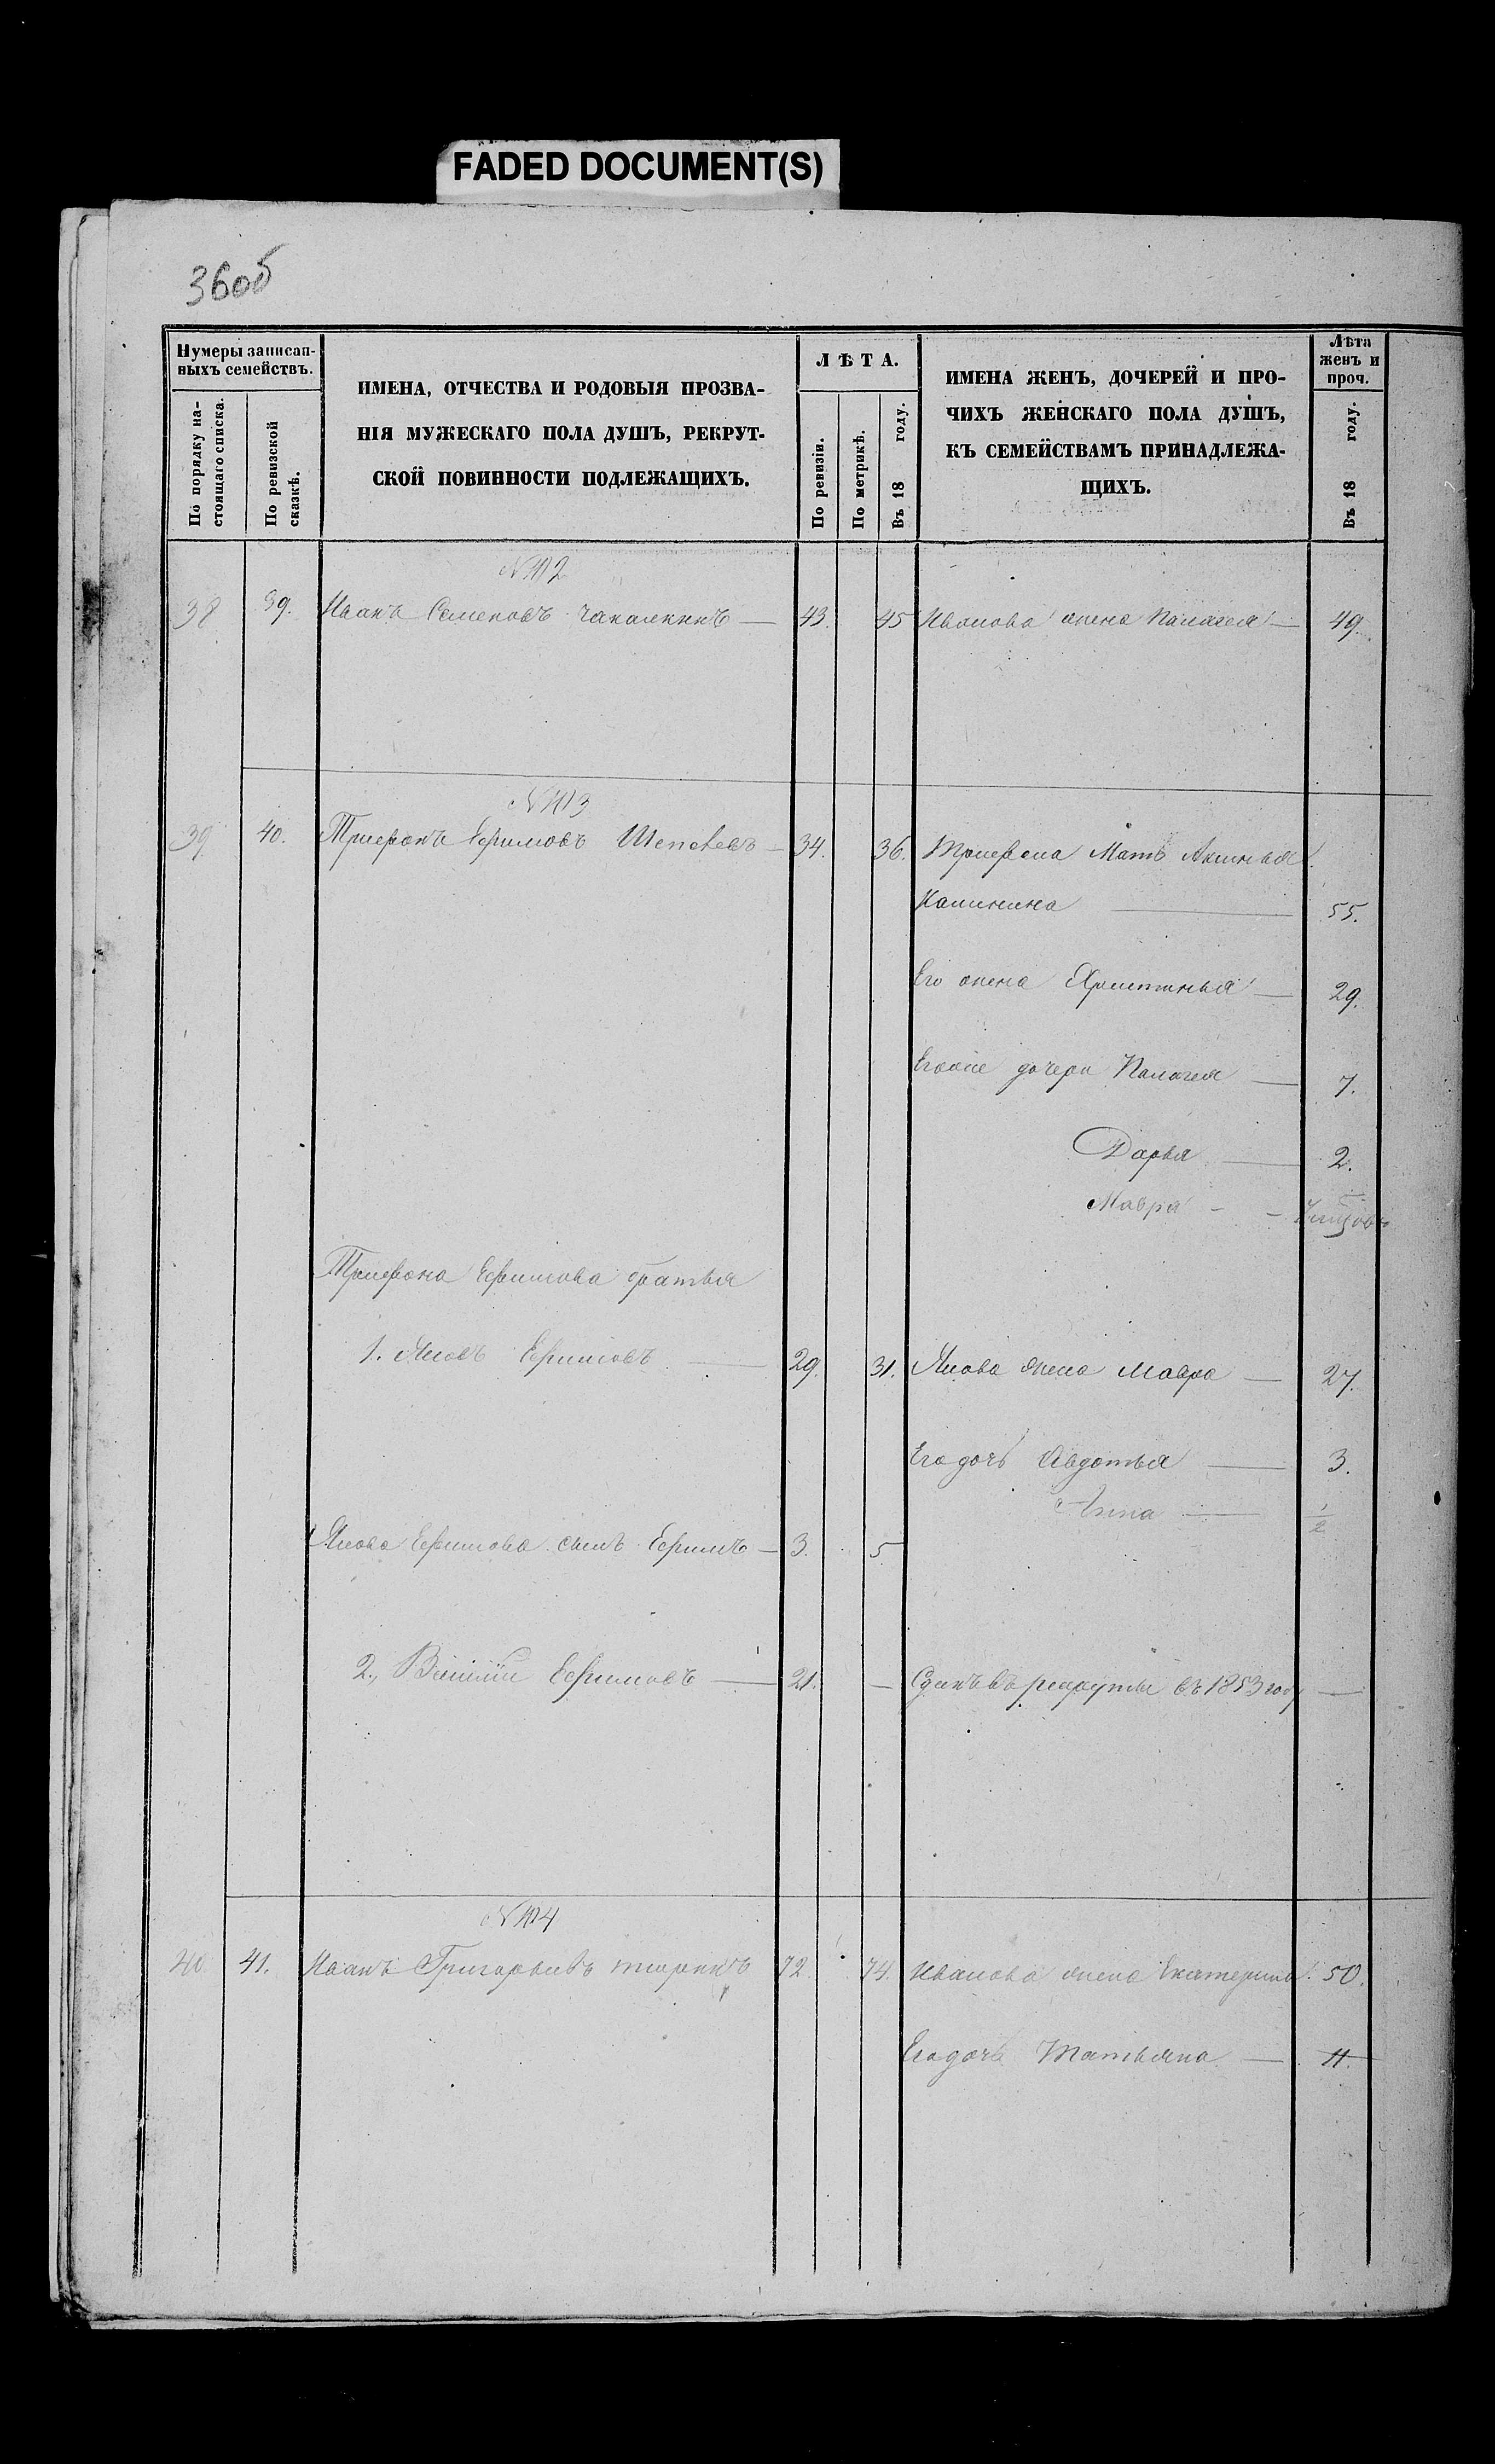 FADED DOCUMENT(S)
36об
Нумеры записан-
ныхъ семействъ.
По порядку на-
стоящаго списка.
По ревизской
сказкѣ.
ИМЕНА, ОТЧЕСТВА И РОДОВЫЯ ПРОЗВА-
НІЯ МУЖЕСКАГО ПОЛА ДУШЪ, РЕКРУТ-
СКОЙ ПОВИННОСТИ ПОДЛЕЖАЩИХЪ.
ЛѢТА.
По ревизіи.
По метрикѣ.
Въ 18 году.
ИМЕНА ЖЕНЪ, ДОЧЕРЕЙ И ПРО-
ЧИХЪ ЖЕНСКАГО ПОЛА ДУШЪ,
КЪ СЕМЕЙСТВАМЪ ПРИНАДЛЕЖА-
ЩИХЪ.
Лѣта
женъ и
проч.
Въ 18 году.
38 39. Иванъ Семеновъ — 43. 45 Иванова жена Палагея — 49.
39 40. Трифонъ Ефимовъ — 34. 36. Трифона Мать Аксинья
Калинина — 55.
Его жена Христинья — 29.
Егоже дочери Палагея — 7.
Дарья — 2.
Мавра - -
Трифона Ефимова братья
1. Яковъ Ефимовъ — 29. 31. Якова жена Мавра — 27.
Его дочь Авдотья — 3.
Анна — 1/2
Якова Ефимова сынъ Ефимъ — 3. 5
2., Ефимовъ — 21. — Сданъ въ рекруты въ 1853 году —
40 41. Иванъ Григорьевъ 72. 74. Иванова жена Екатерина. 50.
Его дочь Татьяна — 11.